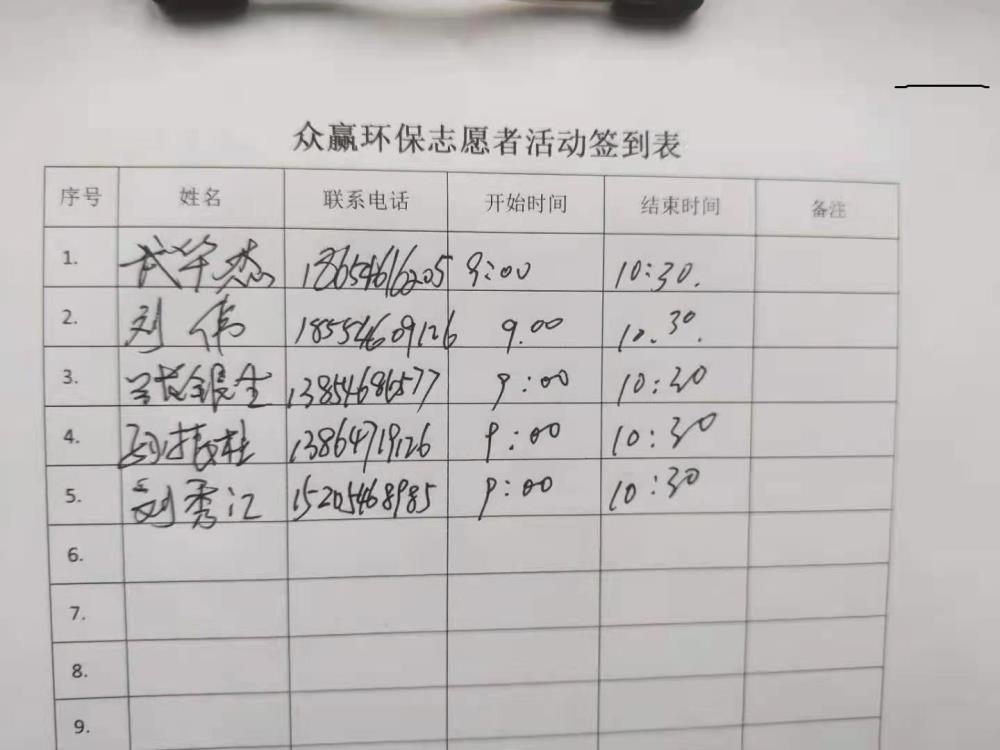 众赢环保志愿者活动签到表
序号 姓名 联系电话 开始时间 结束时间 备注
1. 武华杰 18654616205 9:00 10:30.
2. 刘伟 18554609126 9.00 10.30.
3. 银生 13854686577 9:00 10:30
4. 13864719126 9:00 10:30
5. 刘秀江 15205468985 9:00 10:30
6.
7.
8.
9.